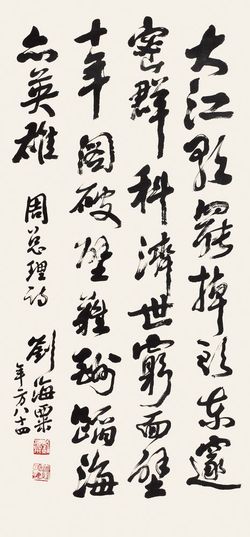 大江歌罷掉頭東邃
密群科濟世窮面壁
十年圖破壁難酬蹈海
亦英雄
周总理詩
劉海粟
年方八十四